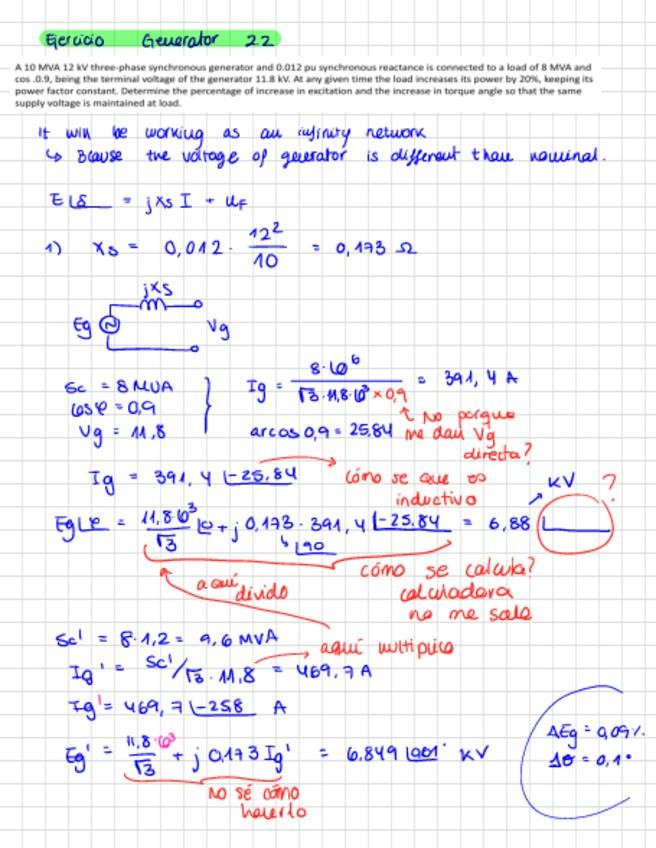 Ejercicio Generator 2.2
A 10 MVA 12 kV three-phase synchronous generator and 0.012 pu synchronous reactance is connected to a load of 8 MVA and
cos .0.9, being the terminal voltage of the generator 11.8 kV. At any given time the load increases its power by 20%, keeping its
power factor constant. Determine the percentage of increase in excitation and the increase in torque angle so that the same
supply voltage is maintained at load.
It will be working as an infinity network
↳ Bcause the voltage of generator is different than nominal.
E∠δ = jXs I + UF
1) Xs = 0,012 · 12²/10 = 0,173 Ω
jXs
Eg Vg
Sc = 8 MVA
cosφ = 0,9
Vg = 11,8
Ig = 8·10⁶/√3·11,8·10³ ×0,9 = 391,4 A
arcos 0,9 = 25,84
↑ No porque
me dan Vg
directa?
Ig = 391,4 ∠-25,84
cómo se que es
inductivo
KV ?
Eg∠φ = 11,8·10³/√3 ∠0 + j 0,173 · 391,4 ∠-25,84 = 6,88 ∠
↳ ∠90
aquí divido
cómo se calcula?
calculadora
no me sale
Sc' = 8·1,2 = 9,6 MVA
aquí multiplico
Ig' = Sc'/√3·11,8 = 469,7 A
Ig' = 469,7 ∠-258 A
Eg' = 11,8·10³/√3 + j 0,173 Ig' = 6,849 ∠001' KV
No sé cómo
hacerlo
ΔEg = 0,09%
Δθ = 0,1°